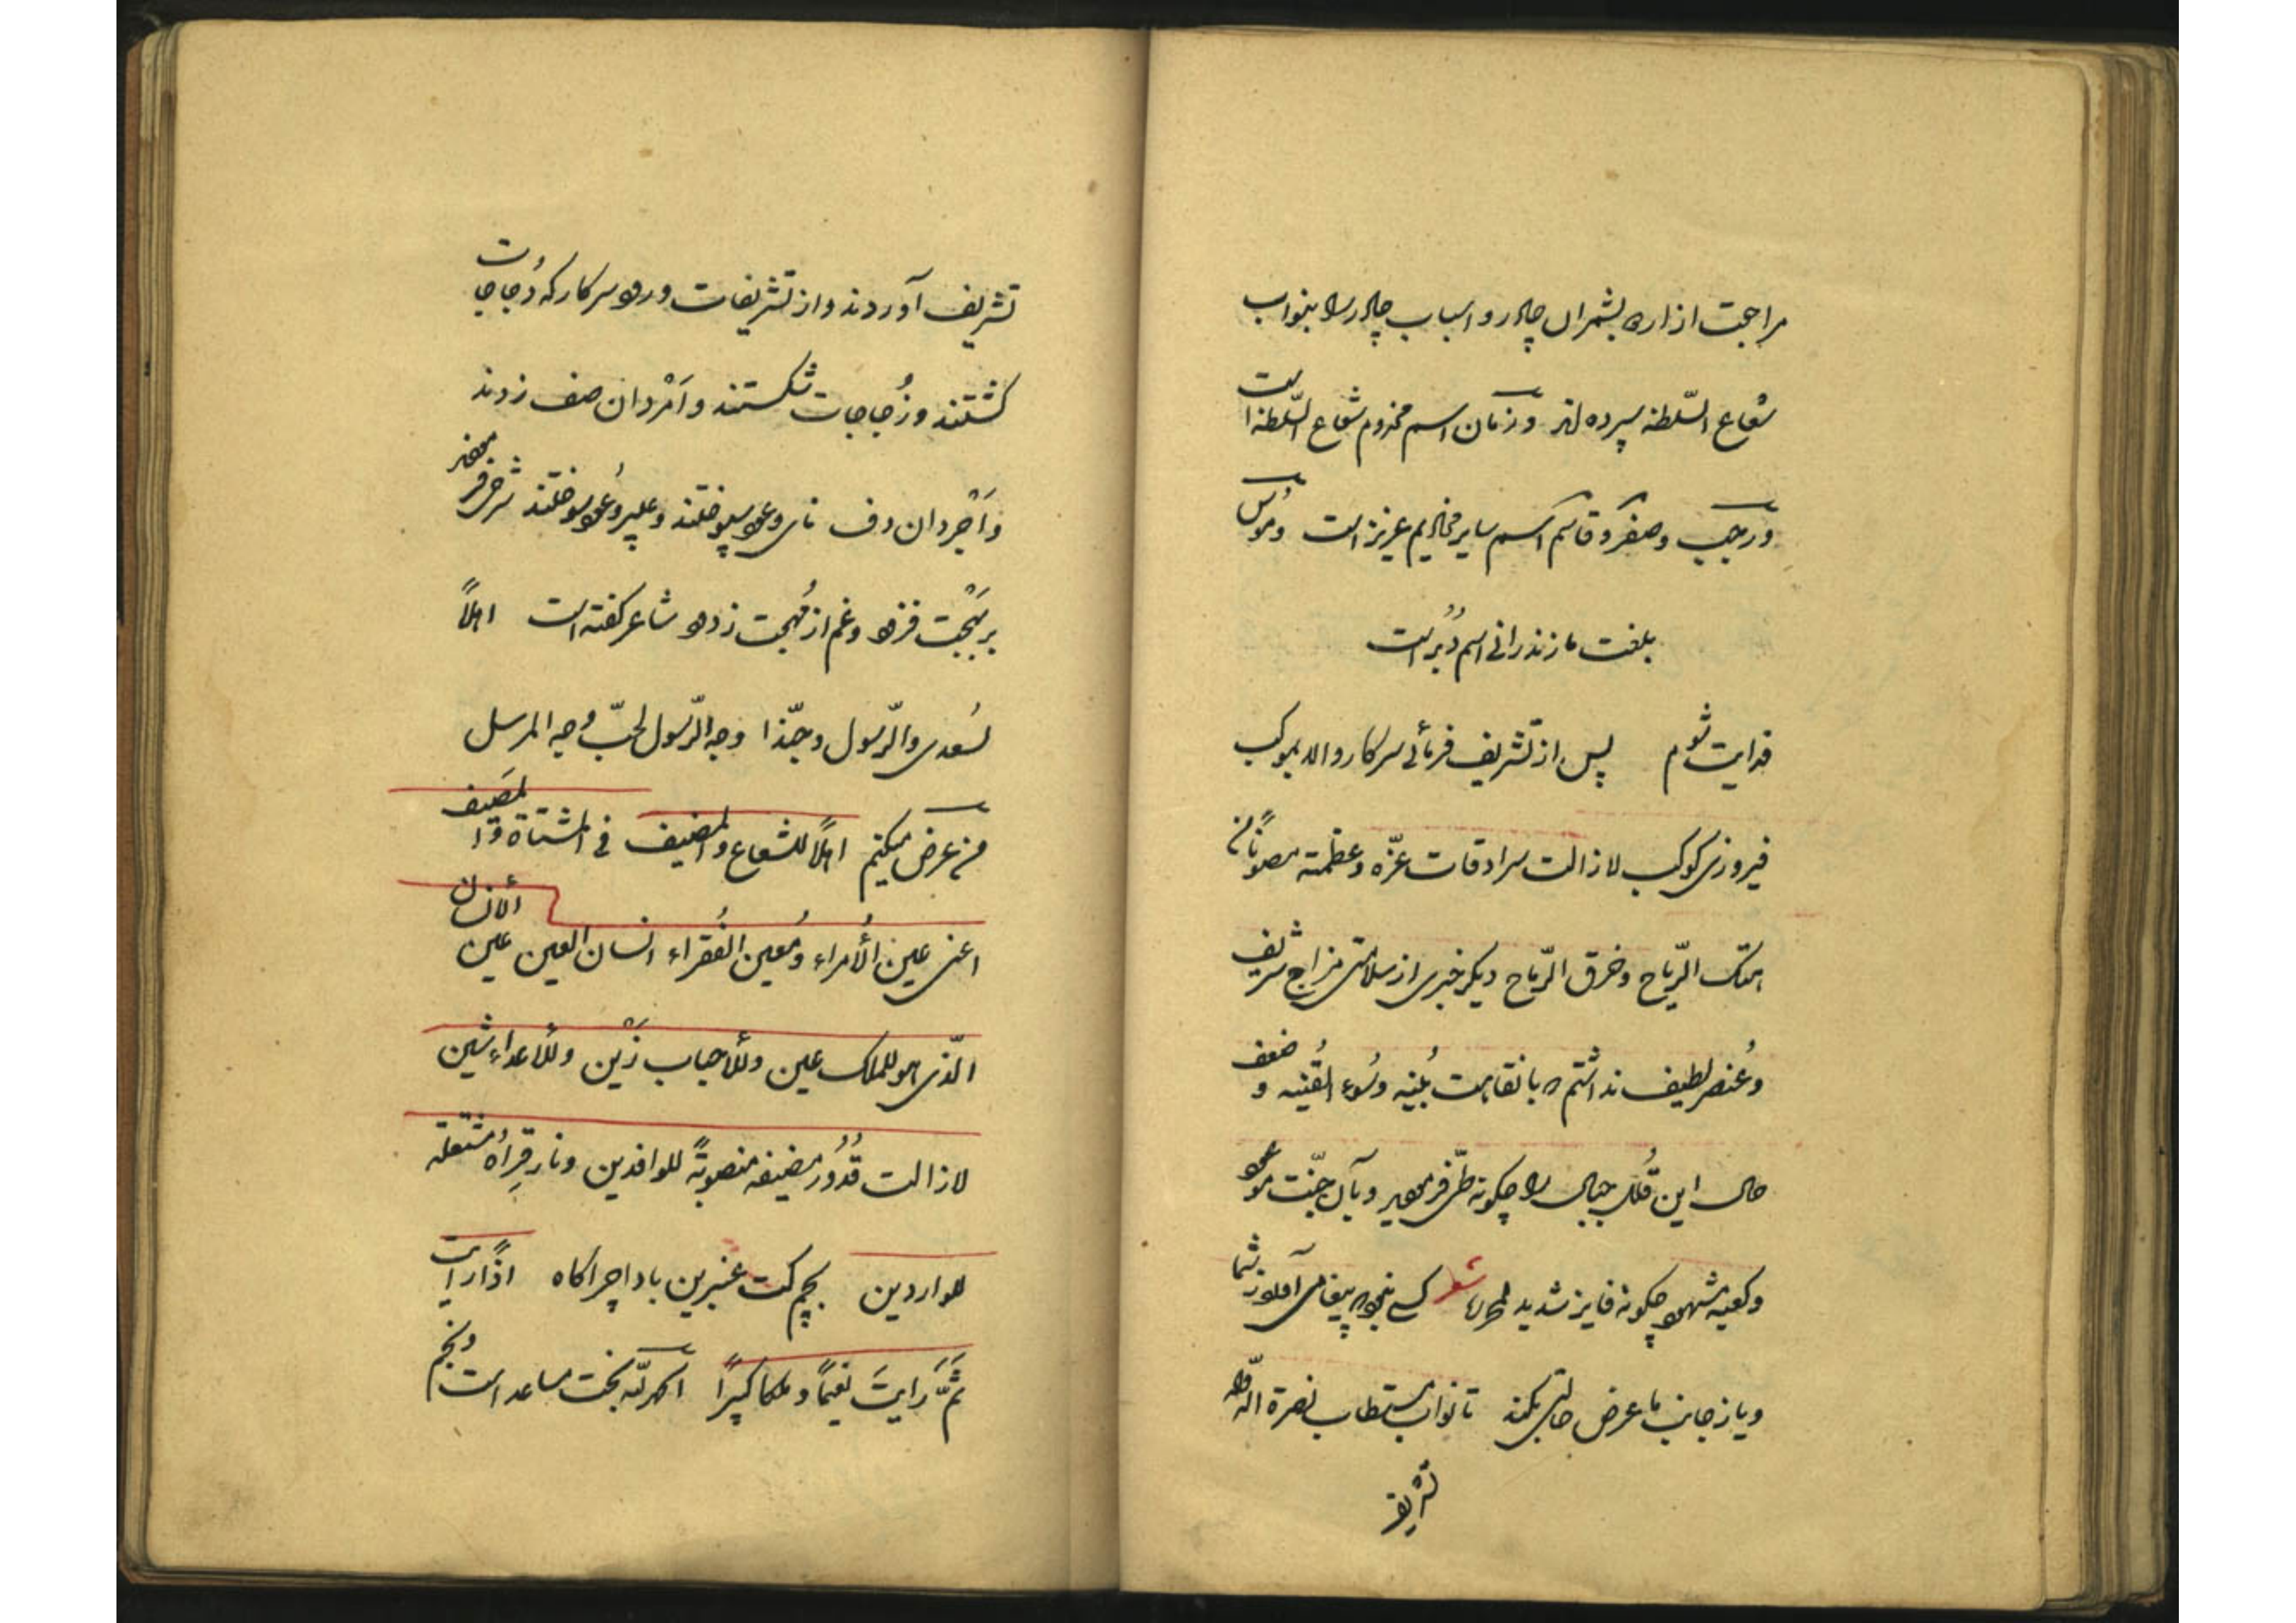 مراجعت از اره بشمران چادر و اسباب چادر را بنواب
شعاع السّلطنه سپرده‌اند و زمان اسم مخدوم شعاع السّلطنه است
و رجب و صفر و قاسم اسم سایر مخادیم عزیز است و مونس
بلغت مازندرانی اسم دُبُر است
فدایت شوم پس از تشریف فرمائی سرکار والا بموکب
فیروزی کوکب لازالت سرادقات عزّه و عظمته مصوناً من
هتک الرّیاح و خرق الرّماح دیگر خبری از سلامتی مزاج شریف
و عُنصر لطیف نداشتم که با نقاهت بُنیه و سُوء القُنیه و ضعف
حال این قُلل جبال را چگونه طی فرمودید و بآن جنّت موعود
و کعبه مشهود چگونه فایز شدید شعر کسی نبود که پیغامی آورد ز شما
و یا ز جانب ما عرض حالتی بکند تا نواب مستطاب نصرة الدّوله
تشریف
تشریف آوردند و از تشریفات ورود سرکار که دُجاجات
کشتند و زُجاجات شکستند و اَمْردان صف زدند
و اَجْردان دف نای و عود بنواختند و عبیر و عُود سوختند شرحی فرمودند
بر بَهْجت فزود و غم از مُهجت زدود شاعر گفته است اهلاً
لسُعدی والرّسول و حبّذا وجه الرّسول لحبّ وجه المرسل
من عرض میکنم اهلاً للشعاع و المضیف فی المشتاة و المصیف
اعنی عین الأُمراء و مُعین الفُقراء انسان العین عین الانسان
الّذی هو للملک عین و للأحباب زَیْن و للأعداء شین
لازالت قُدُور مضیفه منصوبةً للوافدین و نار قِراه مشتعلة
للواردین بچم کت عنبرین بادا چراگاه اذا رایت
ثَمَّ رَایتَ نعیماً و ملکا کبیراً الحمدلله بخت مساعد است و نجم